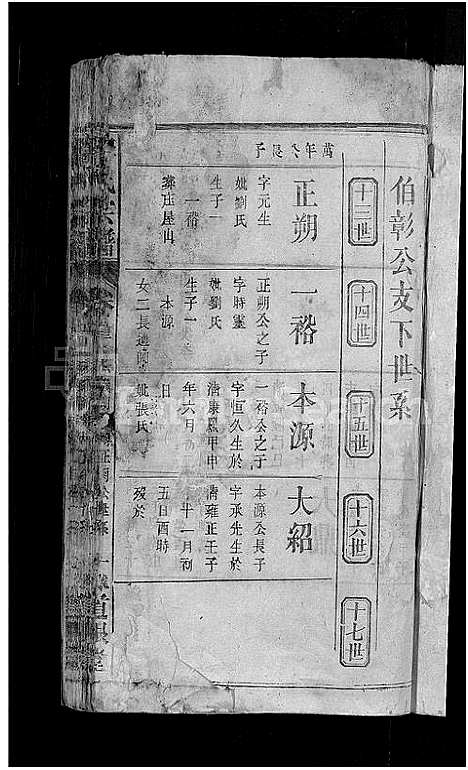 伯彰公支下世系
十三世
十四世
十五世
十六世
十七世
萬年公長子
正朔
字元生
妣劉氏
生子一
一裕
葬庄屋仙
一裕
正朔公之子
字時靈
妣劉氏
生子一
本源
女二長適
本源
一裕公之子
字恒久生於
清康熙甲申
年六月
日
妣張氏
大紹
本源公長子
字承先生於
清雍正壬子
十一月初
五日酉時
歿於
氏宗譜